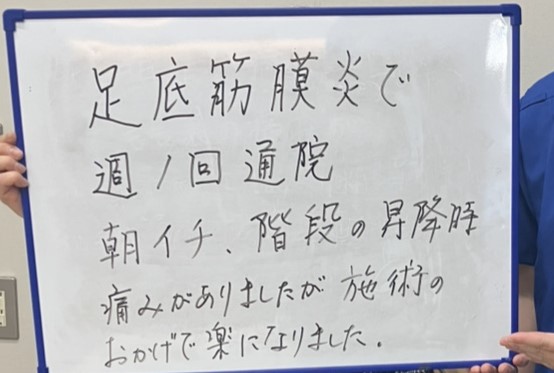 足底筋膜炎で
週1回通院
朝イチ、階段の昇降時
痛みがありましたが施術の
おかげで楽になりました.